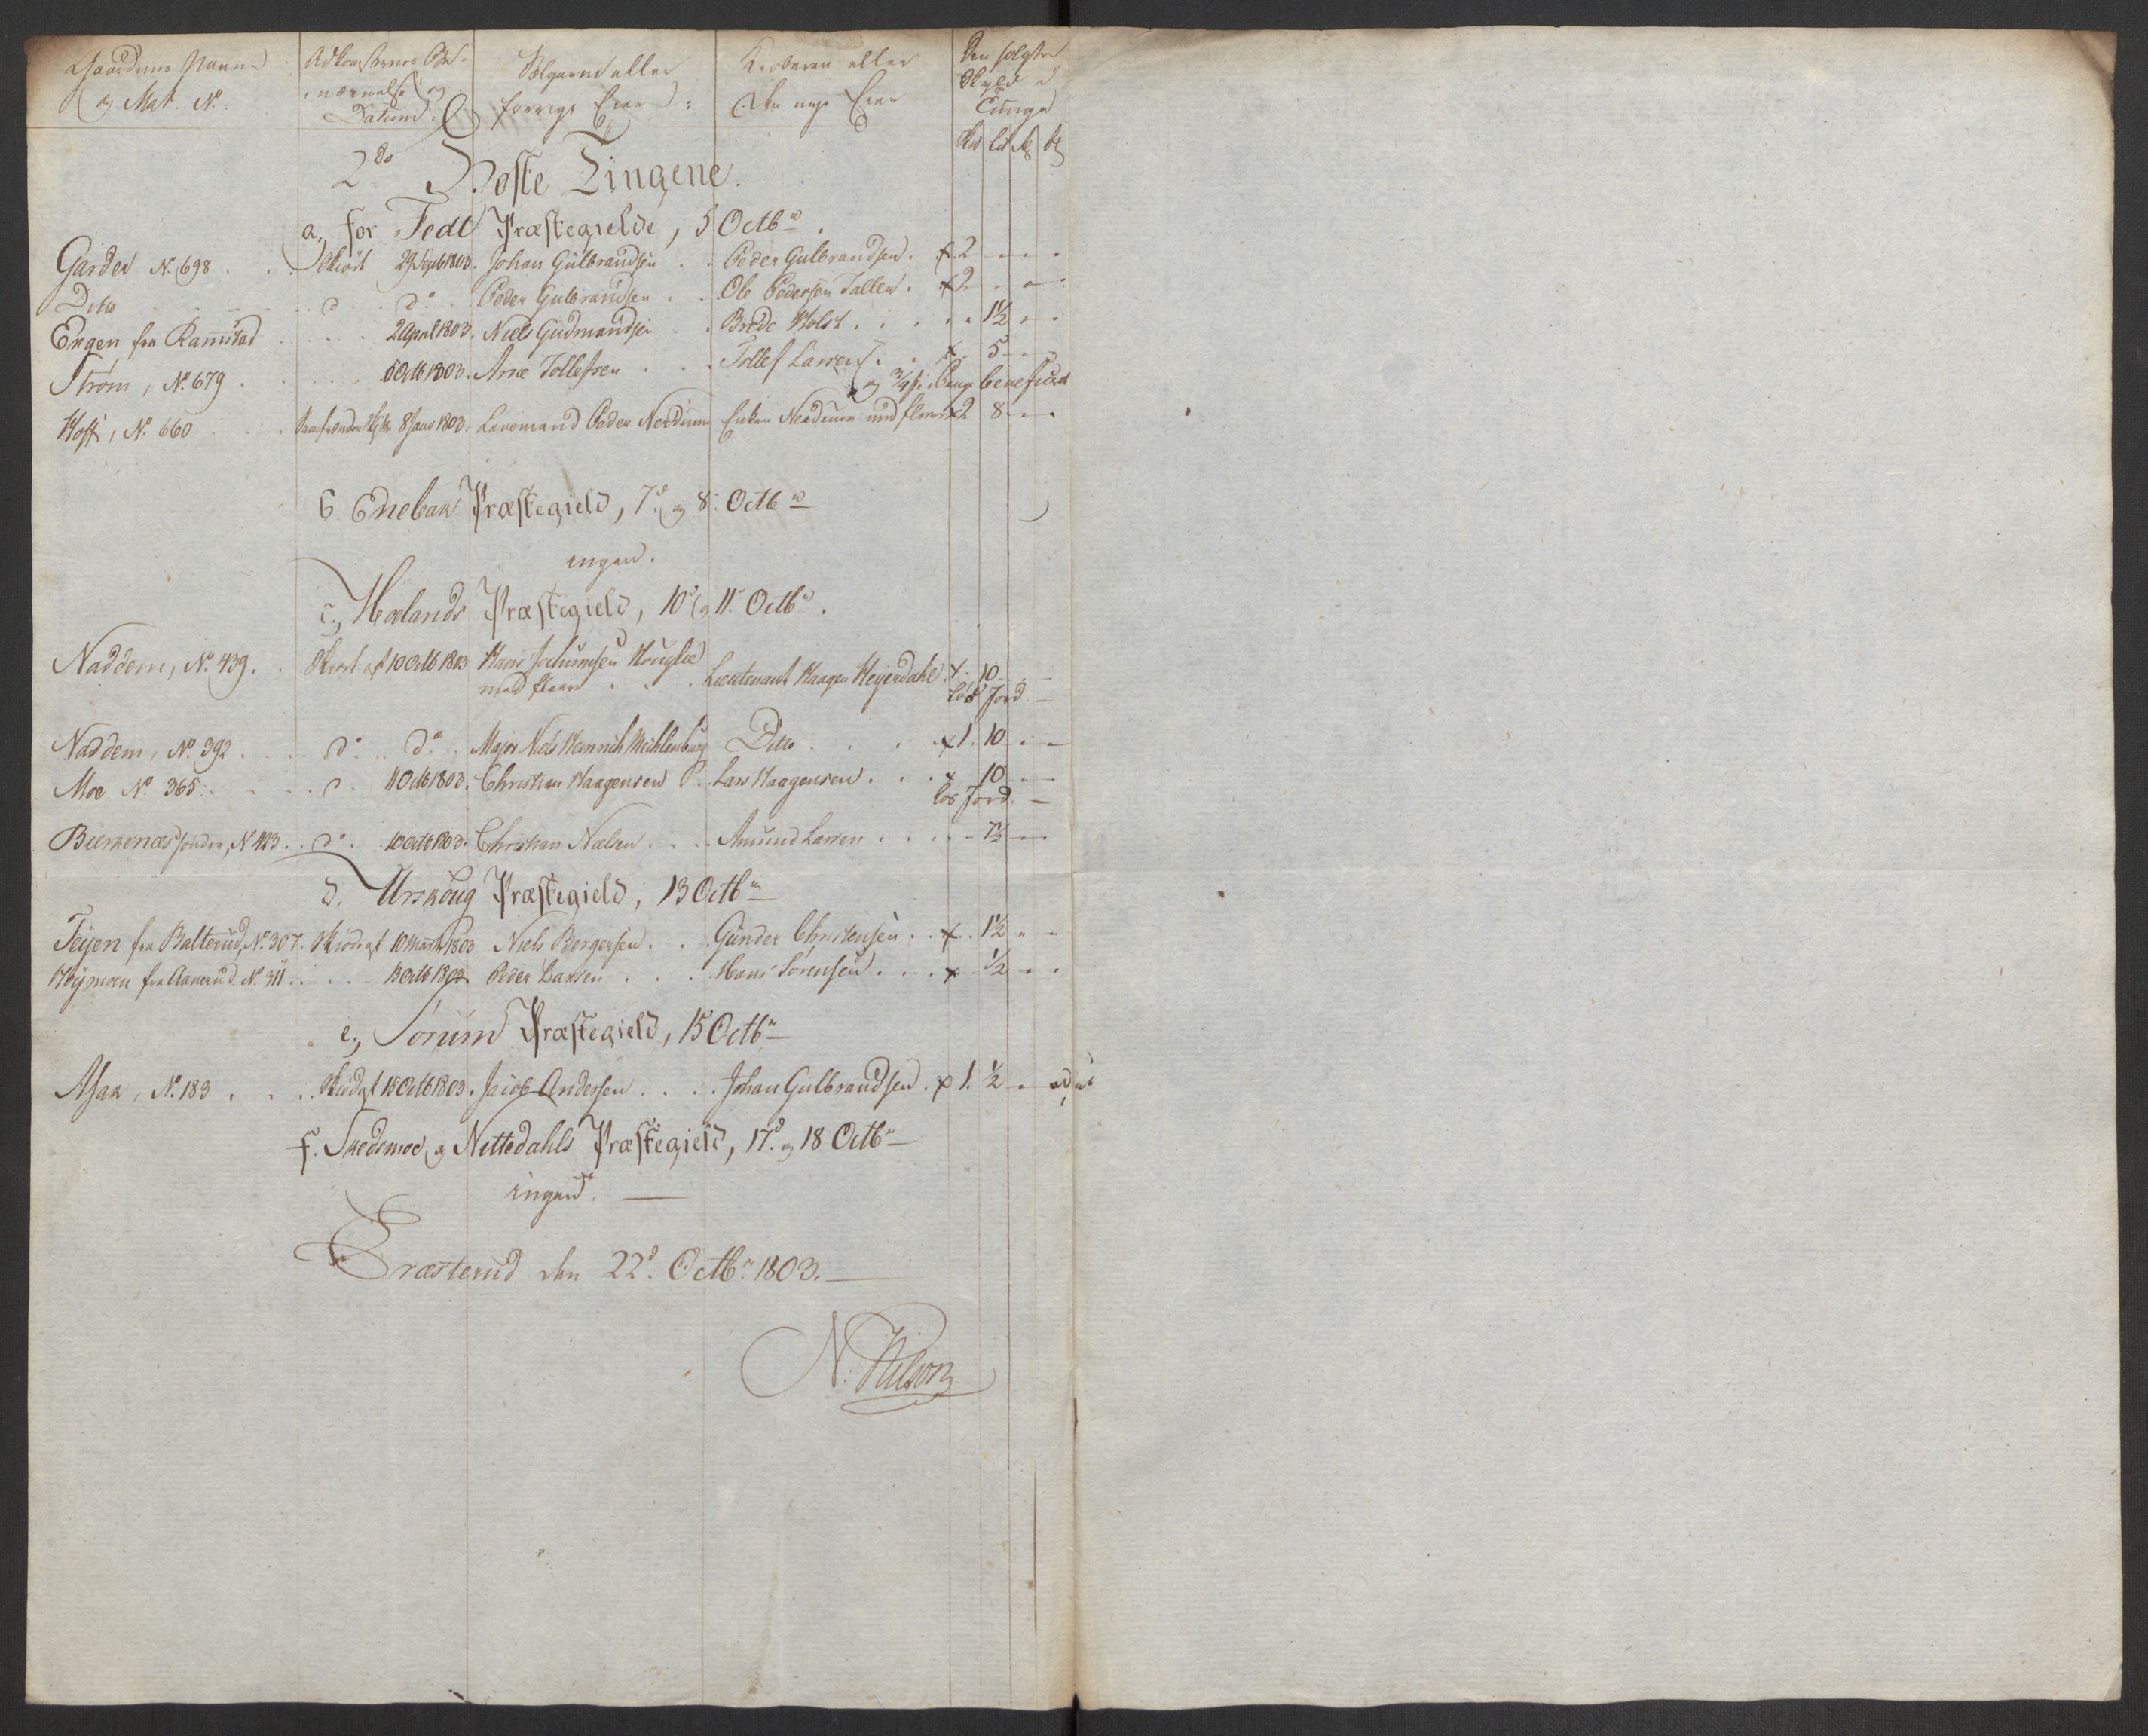 Gaardenes Navne og Mat. No.
Adkomsternes Benævnelse og Datum.
Sælgerne eller forrige Eiere:
Kiøberen eller den nye Eier
Den solgte Skyld i Tunge
Sks Lib
2do Høste Tingene.
a, for Fedt Præstegield, 5 Octbr.
Garder No. 698 . . . Skiöde 29 Septb 1803. Johan Gulbrandsen . . Peder Gulbrandsen . x 2 - - -
Dito . . . do do . Peder Gulbrandsen . . Ole Pedersen Tallen . x 2 - - -
Engen fra Ramstad . . . 2 April 1803. Niels Gudmandsen . . Brede Holst . . . . 1½ - -
Strøm, No. 679 . . . 5 Octb 1803. Arne Tollefsen . . . Tollef Larsen . . x 5 - -
og beneficeret
Hoff, No. 660 . . . 8 Janv 1803. Lensmand Peder Nerdrum Enken Nerdrum med flere x 2 8 - -
b. Enebak Præstegield, 7de og 8 Octbr
ingen.
c, Hølands Præstegield, 10de og 11 Octbr.
Naddem, No. 439. . Skiöde af 10 Octb 1803 Hans Jochumsen Kouglie
med fleere . . . Lieutenant Haagen Heyerdahl x . 10 - -
lös Jord. -
Naddem, No. 392 . . . do . do . Major Niels Henrich Michlenburg Ditto . . . x 1. 10 - -
Moe No. 365. . . . do 11 Octb 1803. Christian Haagensen . Lars Haagensen . . . x 10 - -
lös Jord. -
Bierkenæs søndre, No. 423. . do . 10 Octb 1803. Christian Nielsen . . . Amund Larsen . . . . 7½ - -
d. Urskoug Præstegield, 13 Octbr
Teijen fra Balterud, No. 307. Skiöde af 10 Marts 1803 Niels Bergersen . . Gunder Christensen . . x . 1½ - -
Höymoen fra Aamerud No. 311 . . . 13 Octb 1803. Peder Larsen . . . Hans Sørensen . . . x . ½ - -
e, Sørum Præstegield, 15 Octbr
Asak, No. 183 . . . Skiöde af 15 Octb 1803. Jacob Andersen . . . . Johan Gulbrandsen . x 1. ½ - -
f. Skedsmoe og Nittedahls Præstegield, 17de og 18 Octbr
ingen. —
Præsterud den 22de Octbr. 1803. —
N: Nilson